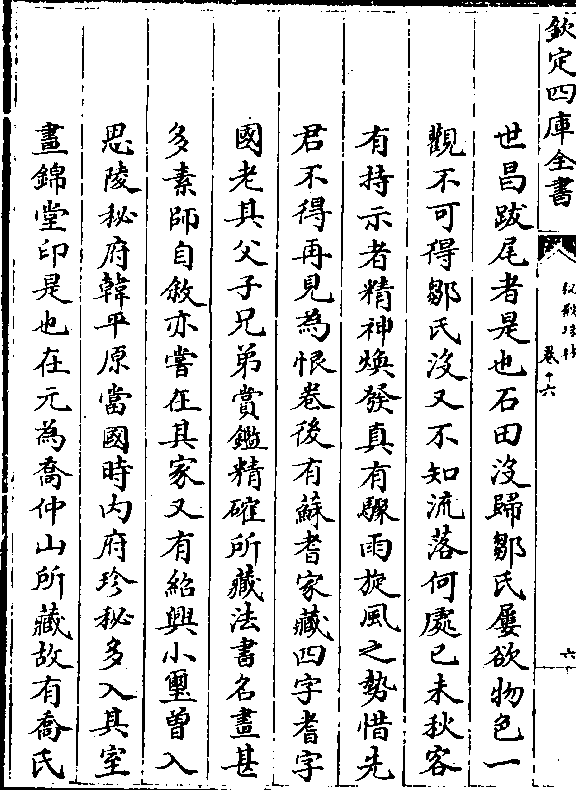 欽定四庫全書
卷十六
六
世昌跋尾者是也石田沒歸鄒氏屢欲物色一
觀不可得鄒氏沒又不知流落何處已未秋客
有持示者精神煥發真有驟雨旋風之勢惜先
君不得再見為恨卷後有蘇耆家藏四字耆字
國老其父子兄弟賞鑑精確所藏法書名畫甚
多素師自敘亦嘗在其家又有紹興小璽曾入
思陵秘府韓平原當國時内府珍秘多入其室
畫錦堂印是也在元為喬仲山所藏故有喬氏